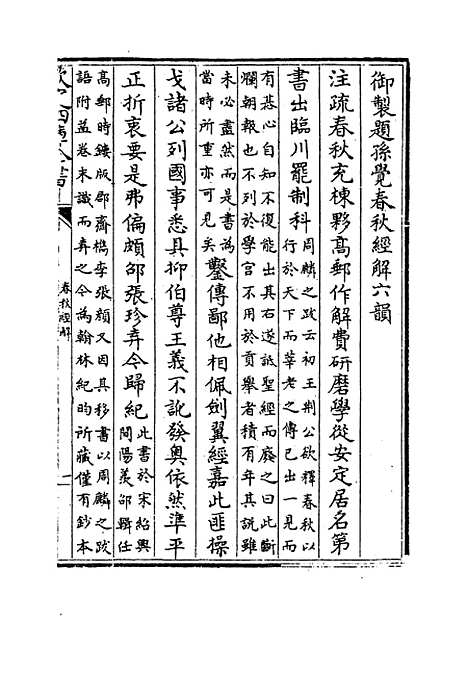 御製題孫覺春秋經解六韻
注疏春秋充棟夥高郵作解費研磨學從安定居名第
書出臨川罷制科周麟之跋云初王荆公欲釋春秋以
行於天下而莘老之傳已出一見而
有惎心自知不復能出其右遂詆聖經而廢之曰此斷
爛朝報也不列於學宫不用於貢舉者積有年其說雖
未必盡然而是書為
當時所重亦可見矣鑿傳鄙他相佩劍翼經嘉此匪操
戈諸公列國事悉具抑伯尊王義不訛發奥依然準平
正折衷要是弗偏頗邵張珍弆今歸紀此書於宋紹興
間陽羨邵輯任
高郵時鏤版郡齋檇李張顏又因其移書以周麟之跋
語附益卷末識而弆之今為翰林紀昀所藏僅有鈔本
春秋經解
一